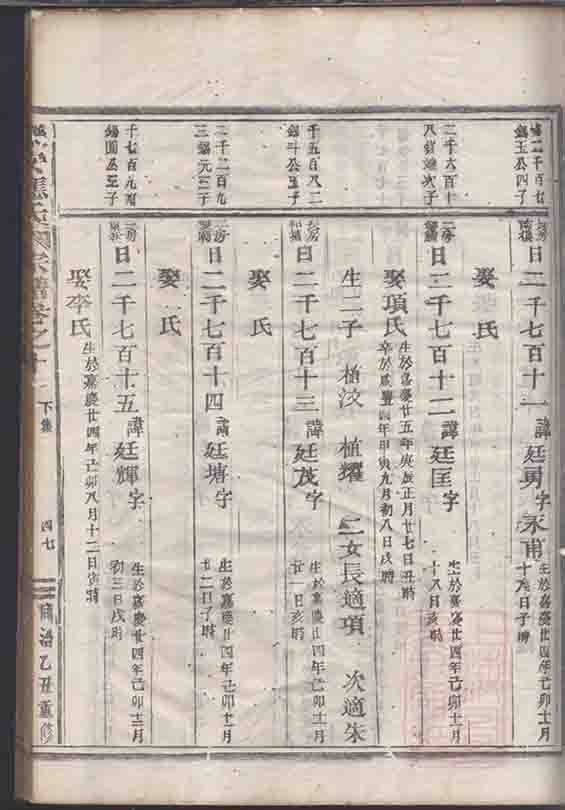 二千百七
錫玉公四子
日二千七百十一 諱廷勇字永甫 生於嘉慶廿四年己卯十二月
十八日子時
娶 氏
二千六百十
次子
日二千七百十二 諱廷匡字 生於嘉慶廿四年己卯十二月
十八日亥時
娶項氏 生於嘉慶廿五年庚辰正月廿七日丑時
卒於咸豐四年甲寅九月初八日戌時
生二子 植汶 植耀 二女長適項 次適朱
千五百八二
錫斗公五子
日二千七百十三 諱廷茂字 生於嘉慶廿四年己卯十二月
廿一日亥時
娶 氏
二千二百九
三錫元三子
日二千七百十四 諱廷塘字 生於嘉慶廿四年己卯十二月
廿二日子時
娶 氏
千七百九
錫圖公五子
日二千七百十五 諱廷輝字 生於嘉慶廿四年己卯十二月
初三日戌時
娶李氏 生於嘉慶廿四年己卯八月十二日寅時
氏宗譜卷之十一
下集
四七
同治乙丑重修